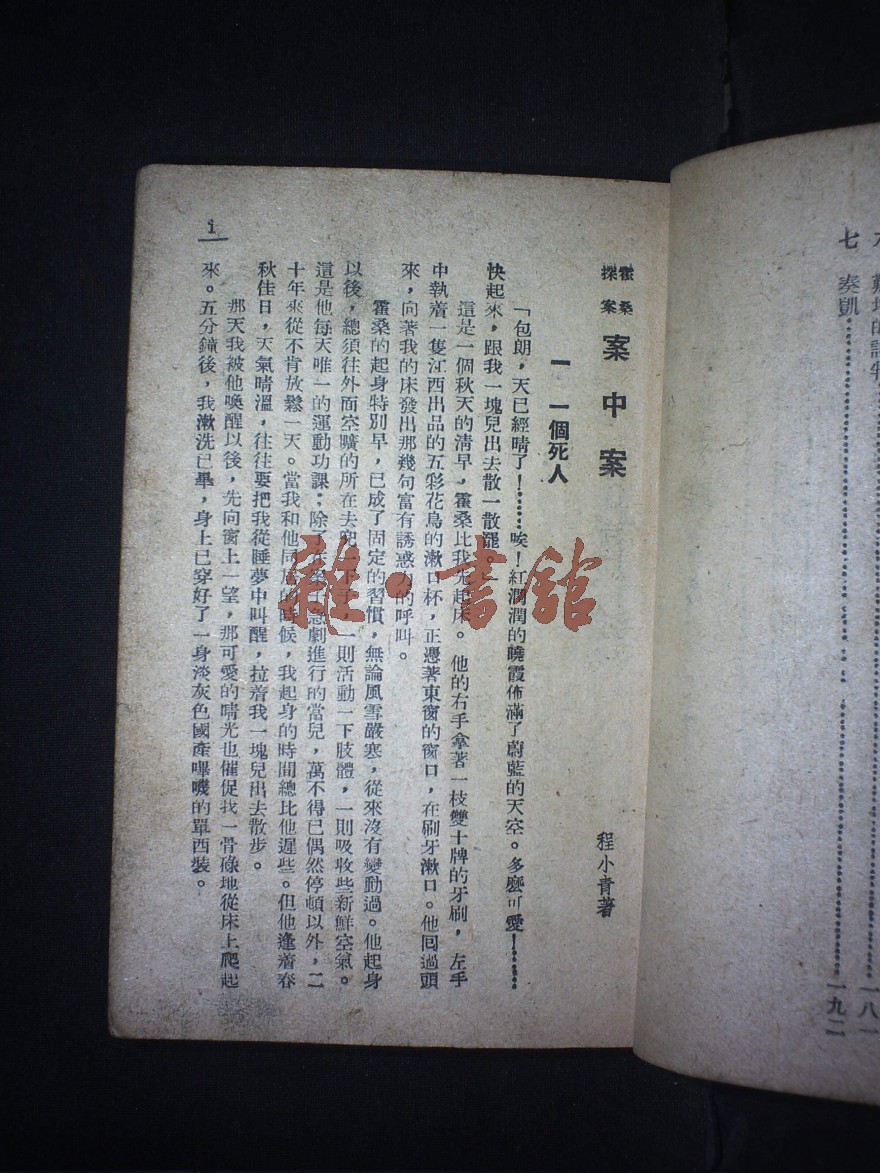 七　奏凱
一八一
一九二
霍桑探案
案中案
程小青著
一　一個死人
「包朗，天已經晴了！……唉！紅潤潤的曉霞佈滿了蔚藍的天空。多麼可愛！……
快起來，跟我一塊兒出去散一散罷
這是一個秋天的清早，霍桑比我先起床。他的右手拿著一枝雙十牌的牙刷，左手
中執着一隻江西出品的五彩花鳥的漱口杯，正憑著東窗的窗口，在刷牙漱口。他回過頭
來，向著我的床發出那幾句富有誘惑力的呼叫。
霍桑的起身特別早，已成了固定的習慣，無論風雪嚴寒，從來沒有變動過。他起身
以後，總須往外面空曠的所在去兜一下子，一則活動一下肢體，一則吸收些新鮮空氣。
這是他每天唯一的運動功課；除了在急劇進行的當兒，萬不得已偶然停頓以外，二
十年來從不肯放鬆一天。當我和他同居的時候，我起身的時間總比他遲些。但他逢着春
秋佳日，天氣晴溫，往往要把我從睡夢中叫醒，拉着我一塊兒出去散步。
那天我被他喚醒以後，先向窗上一望，那可愛的晴光也催促我一骨碌地從床上爬起
來。五分鐘後，我漱洗已畢，身上已穿好了一身淡灰色國產嗶嘰的單西裝。
1
雜·書館